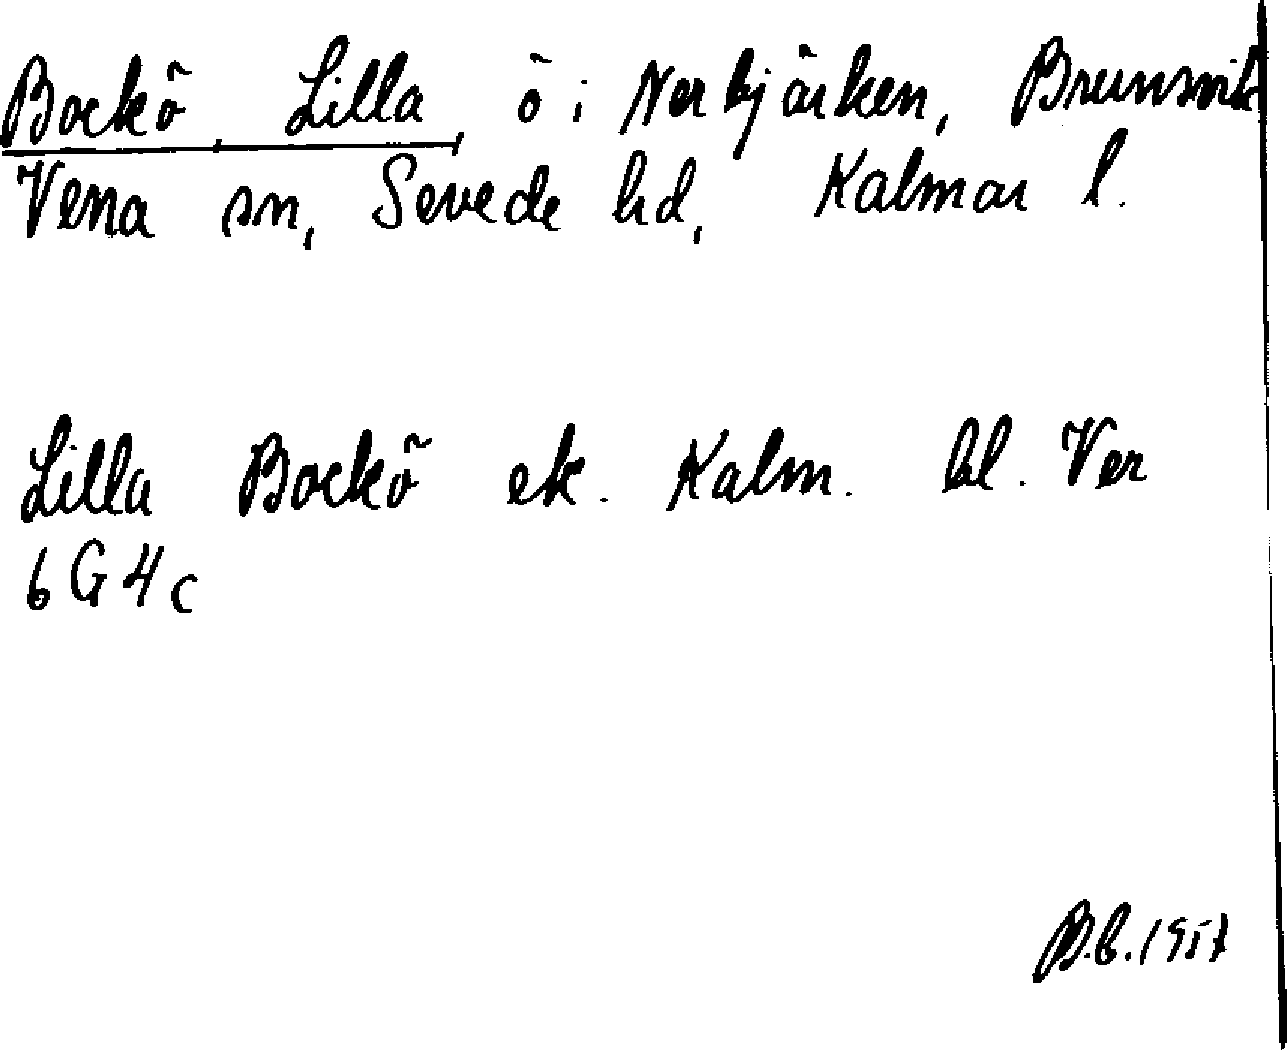 Bockö, Lilla, ö i Nerbjärken, Brunsvik
Vena sn, Sevede hd, Kalmar l.
Lilla Bockö ek. Kalm. bl. Ver
6G4c
B.B. 1957